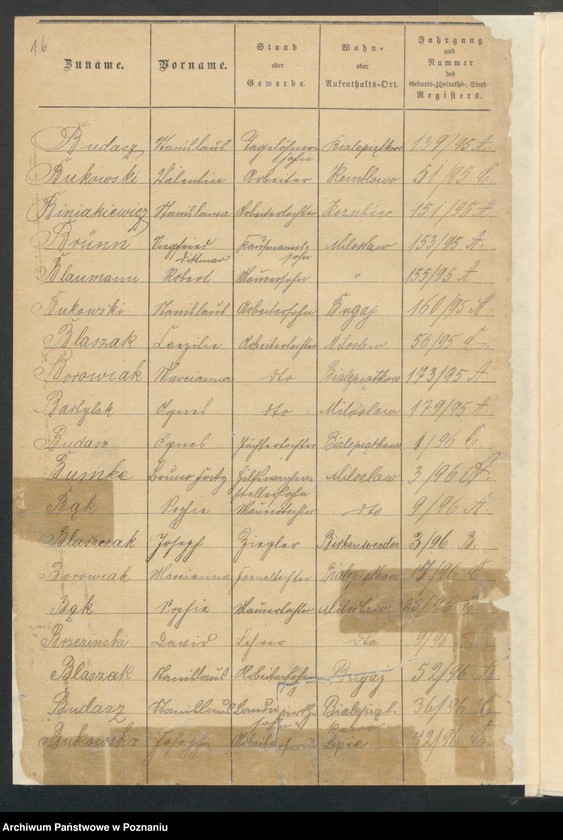 16
Zuname. Vorname. Stand oder Gewerbe. Wohn- oder Aufenthalts-Ort. Jahrgang und Nummer des Geburts-, Heiraths-, Sterb Registers.
Budasz Stanislaus Tagelöhner sohn Bialepiątkowo 139/95 A
Bukowski Valentin Arbeiter 51/95 C
Biniakiewicz Stanislawa Arbeitertochter 151/95 A
Brünn Siegfried Dittmar Kaufmanns sohn Miloslaw 153/95 A.
Blaumann Robert Maurersohn " 155/95 A
Bukowski Stanislaus Arbeitersohn Bugaj 160/95 A.
Blaszak Caezilie Arbeitertochter Miloslaw 56/95 C
Borowiak Marcianna dto Bialepiątkow 173/95 A
Bartylak Agnes dto Miloslaw 179/95 A
Budasz Agnes Bialepiątkowo 1/96 C.
Bumke Bruno Fritz Miloslaw 3/96 A.
Bąk Sophie Maurertochter dto 9/96 A
Blaszczak Joseph Ziegler Birkenwerder 3/96 B
Borowiak Marcianna Bialepiątkow 17/96 C
Bąk Sophie Maurertochter Miloslaw /96 C
Brzezinski David Lehrer dto 9/96
Blaszak Stanislaus Arbeitersohn Bugaj 52/96 A
Budasz Stanislaus sohn Bialepiąt kowo 36/96 C
Bukowska Josepha Lipie 42/96
Archiwum Państwowe w Poznaniu